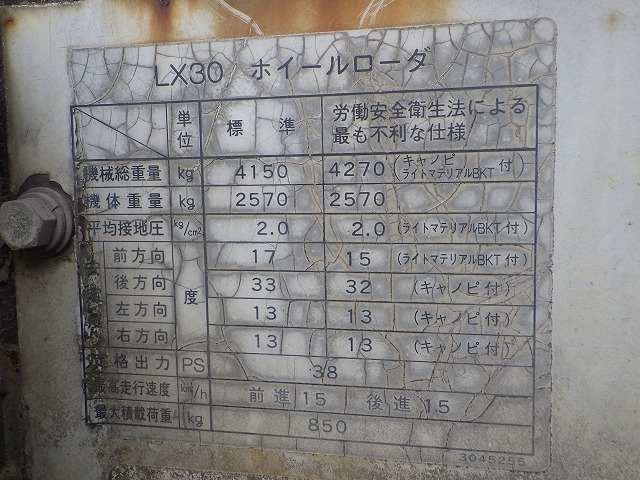 LX30 ホイールローダ
単位 標準 労働安全衛生法による最も不利な仕様
機械総重量 kg 4150 4270 (キャノピ ライトマテリアルBKT 付)
機体重量 kg 2570 2570
平均接地圧 kg/cm2 2.0 2.0 (ライトマテリアルBKT付)
前方向 度 17 15 (ライトマテリアルBKT付)
後方向 33 32 (キャノピ付)
左方向 13 13 (キャノピ付)
右方向 13 13 (キャノピ付)
格出力 PS 38
最高走行速度 km/h 前進15 後進15
最大積載荷重 kg 850
3045255